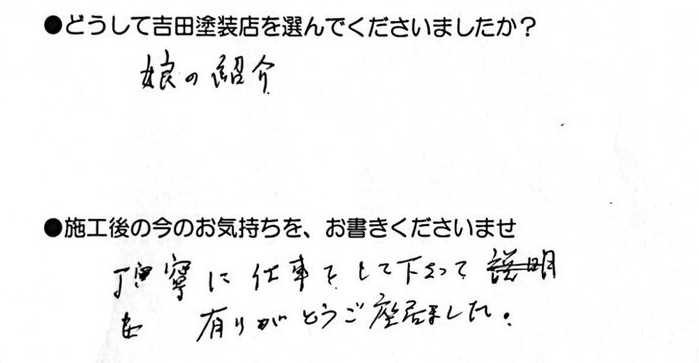 ●どうして吉田塗装店を選んでくださいましたか?
娘の紹介
●施工後の今のお気持ちを、お書きくださいませ
丁寧に仕事をして下さって説明
を 有りがとうご座居ました。